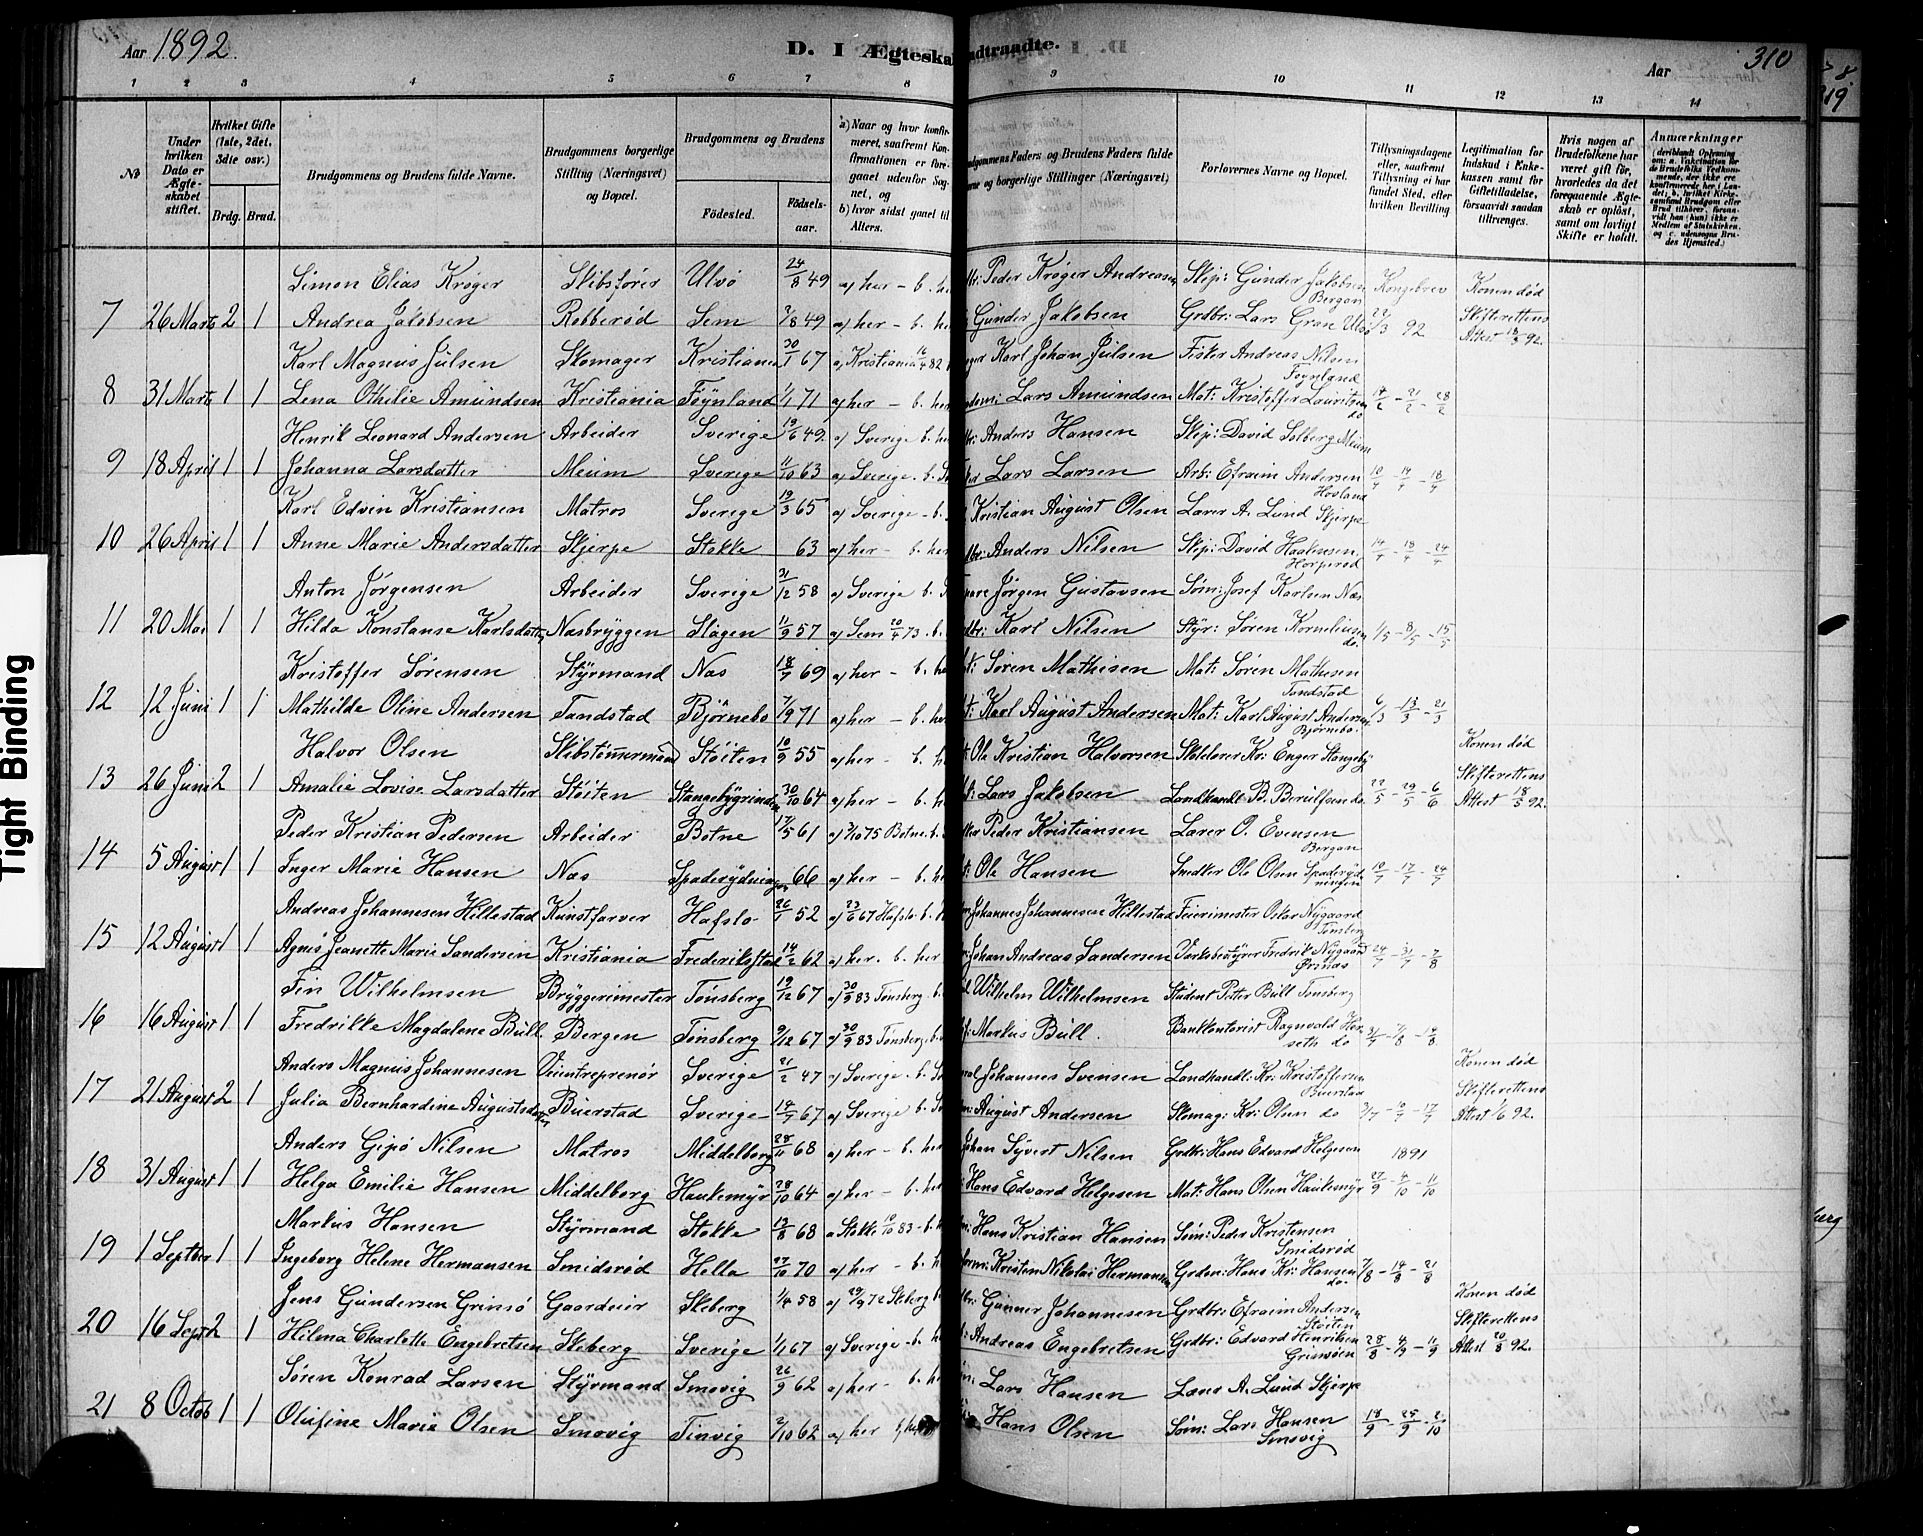 Aar 1892.
D. I Ægteskab Indtraadte.
Aar
310
1 2 3 4 5 6 7 8 9 10 11 12 13 14
№
Under hvilken Dato er Ægteskabet stiftet.
Hvilket Gifte (1ste, 2det, 3die osv.)
Brdg. Brud.
Brudgommens og Brudens fulde Navne.
Brudgommens borgerlige Stilling (Næringsvei) og Bopæl.
Brudgommens og Brudens
Fødested.
Fødselsaar.
a) Naar og hvor konfirmeret, saafremt Konfirmationen er foregaaet udenfor Sognet, og
b) hvor sidst gaaet til Alters.
dgommens Faders og Brudens Faders fulde
ne og borgerlige Stillinger (Næringsvei)
Forlovernes Navne og Bopæl.
Tillysningsdagene eller, saafremt Tillysning ei har fundet Sted, efter hvilken Bevilling.
Legitimation for Indskud i Enkekassen samt for Giftetilladelse, forsaavidt saadan tiltrænges.
Hvis nogen af Brudefolkene har været gift før, hvorledes da det foregaaende Ægteskab er opløst, samt om lovligt Skifte er holdt.
Anmærkninger
Simon Elias Krøger Skibsfører Ulvø 24/8 49 a) her - b. he Peder Krøger Andreasen Skip: Gunder Jakobsen Bergan Kongebrev Konen død
7 26 Marts 2 1 Andrea Jakobsen Robberød Sem 7/8 49 a) her - b. he Gunder Jakobsen Grdbr: Lars Gran Ulvø 22/3 92 Skifterettens Attest 18/3 92.
Karl Magnus Julsen Skomager Kristiania 30/1 67 a) Kristiania 16/4 82 Karl Johan Julsen Fisker Andreas Nilsen Føynland
8 31 Marts 1 1 Lena Othilie Amundsen Kristiania Føynland 1/1 71 a) her - b. he Lars Amundsen Mat: Kristoffer Lauritsen do 14/2 - 21/2 - 28/2
Henrik Leonard Andersen Arbeider Sverige 19/6 49. a) Sverige b. he Anders Hansen Skip: David Solberg Meum
9 18 April 1 1 Johanna Larsdatter Meum Sverige 11/10 63 a) Sverige. b. Lars Larsen Arb: Efraim Andersen Hovland 10/4 - 14/4 - 18/4
Karl Edvin Kristiansen Matros Sverige 19/3 65 a) Sverige - b. Kristian August Olsen Lærer A. Lund Skjerpe
10 26 April 1 1 Anne Marie Andersdatter Skjerpe Stokke 63 a) her - b. her Anders Nilsen Skip: David Haakensen, Horperød 14/4 - 18/4 - 24/4
Anton Jørgensen Arbeider Sverige 31/12 58 a) Sverige b. Jørgen Gustavsen Søm: Josef Karlsen Næs
11 20 Mai 1 1 Hilda Konstanse Karlsdatter Næsbryggen Slagen 11/9 57 a) Sem 20/4 73. b. Karl Nilsen Styr: Søren Korneliusen do. 1/5 - 8/5 - 15/5
Kristoffer Sørensen Styrmand Næs 18/7 69 a) her - b. he Søren Mathisen Mat: Søren Mathesen Tandstad
12 12 Juni 1 1 Mathilde Oline Andersen Tandstad Bjørnebo 7/9 71 a) her - b. he Karl August Andersen Mat: Karl August Andersen Bjørnebo. 6/3 - 13/3 - 21/3
Halvor Olsen Skibstømmermand Støiten 10/9 55 a) her - b. h Ole Kristian Halvorsen Skolelærer Kr: Enger Stangeby Konen død
13 26 Juni 2 1 Amalie Lovise Larsdatter Støiten Stangebygrinden 30/10 64 a) her - b. he Lars Jakobsen Landhandl. B. Berulfsen do. 22/5 - 29/5 - 6/6 Skifterettens Attest 18/5 92.
Peder Kristian Pedersen Arbeider Botne 17/5 61 a) 3/10 75 Botne. b. Peder Kristiansen Lærer O. Evensen Bergan
14 5 August 1 1 Inger Marie Hansen Næs Spaderydningen 66 a) her - b. he Ole Hansen Snedker Ole Olsen Spaderydningen 10/7 - 17/7 - 24/7
Andreas Johannesen Hillestad Kunstfarver Hafslo 26/1 52 a) 23/6 67 Hafslo b. Johannes Johannesen Hillestad Feiermester Oskar Nygaard Tønsberg
15 12 August 1 1 Agnes Jeanette Marie Sandersen Kristiania Frederikstad 14/2 62 a) her. b. her Johan Andreas Sandersen Værksbestyrer Fredrik Nygaard Ørsnes 24/7 - 31/7 - 7/8
Fin Wilhelmsen Bryggerimester Tønsberg 19/12 67 a) 30/9 83 Tønsberg b. Wilhelm Wilhelmsen Student Peter Bull Tønsberg
16 16 August 1 1 Fredrikke Magdalene Bull Bergen Tønsberg 9/12 67 a) 30/9 83 Tønsberg. b. Markus Bull. Bankkontorist Ragnvald Herseth do 31/7 - 7/8 - 14/8
Anders Magnus Johannesen Veientreprenør Sverige 21/2 47 a) Sverige - b. Johannes Svensen Landhandl: Kr: Kristoffersen Buerstad Konen død
17 21 August 2 1 Julia Bernhardine Augustsdatter Buerstad Sverige 14/7 67 a) Sverige b. August Andersen Skomag: Kr: Olsen do 3/7 - 10/7 - 17/7 Skifterettens Attest 1/6 92.
Anders Gipø Nilsen Matros Middelborg 28/11 68 a) her - b. her Johan Syvert Nilsen Grdbr: Hans Edvard Helgesen 1891
18 31 August 1 1 Helga Emilie Hansen Middelborg Haukemyr 28/10 64 a) her - b. her Hans Edvard Helgesen Mat: Hans Olsen Haukemyr 27/9 - 4/10 - 11/10
Markus Hansen Styrmand Stokke 13/8 68 a Stokke 10/10 83 - b. Hans Kristian Hansen Søm: Peder Kristensen Smidsrød
19 1 Septber 1 1 Ingeborg Helene Hermansen Smidsrød Hella 27/10 70 a) her - b. he Kristen Nikolai Hermansen Grdm: Hans Kr: Hansen do. 7/8 - 14/8 - 21/8
Jens Gundersen Grimsø Gaardeier Skeberg 1/4 58 a) 29/9 72 Skeberg Gunner Johannesen Grdbr: Efraim Andersen Støiten Konen død
20 16 Sept 2 1 Hilma Charlotte Engebretsen Skeberg Sverige 1/1 67 a) Sverige - b. h Andreas Engebretsen Grdbr: Edvard Henriksen Grimsøen 28/8 - 4/9 - 11/9 Skifterettens Attest 20/8 92.
Søren Konrad Larsen Styrmand Smovig 26/9 62 a) her - b. he Lars Hansen Lærer A. Lund Skjerpe
21 8 Octob 1 1 Olufine Marie Olsen Smovig Tinvig 2/10 62 a) her b. her Hans Olsen Søm: Lars Hansen Smovig 18/9 - 25/9 - 2/10
Tight Binding